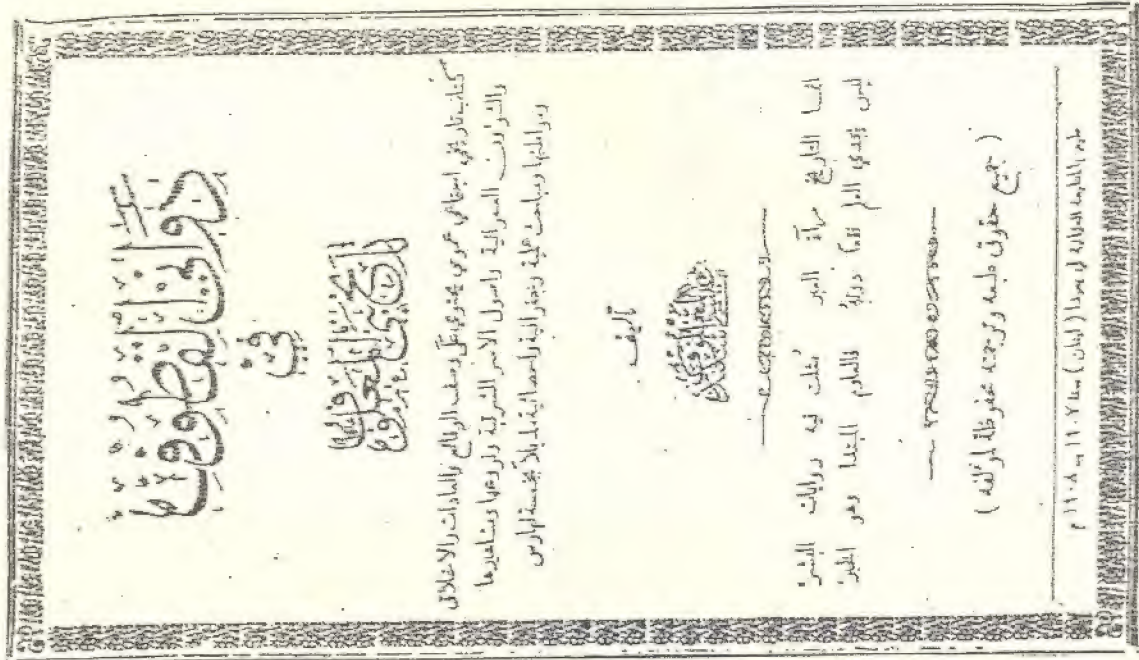 دواني القطوف
في
تاريخ بني المعلوف
كتاب تاريخي اجتماعي عمومي يحتوي على وصف الوقائع والعادات والاخلاق
والشؤون العمرانية واصول الاسر الشرقية وفروعها ومشاهيرها
ومواطنها ومباحث علمية وجغرافية واحصائية مذيلاً بخمسة فهارس
تأليف
عيسى اسكندر المعلوف
انما التاريخ مرآة العبر مُثلت فيه روايات البشر
ليس يجدي المرء نفعاً دونه والعلوم المبتدا وهو الخبر
(جميع حقوق طبعه وترجمته محفوظة لمؤلفه)
طبع بالمطبعة العثمانية في بعبدا (لبنان) سنة ١٩٠٧ - ١٩٠٨ م